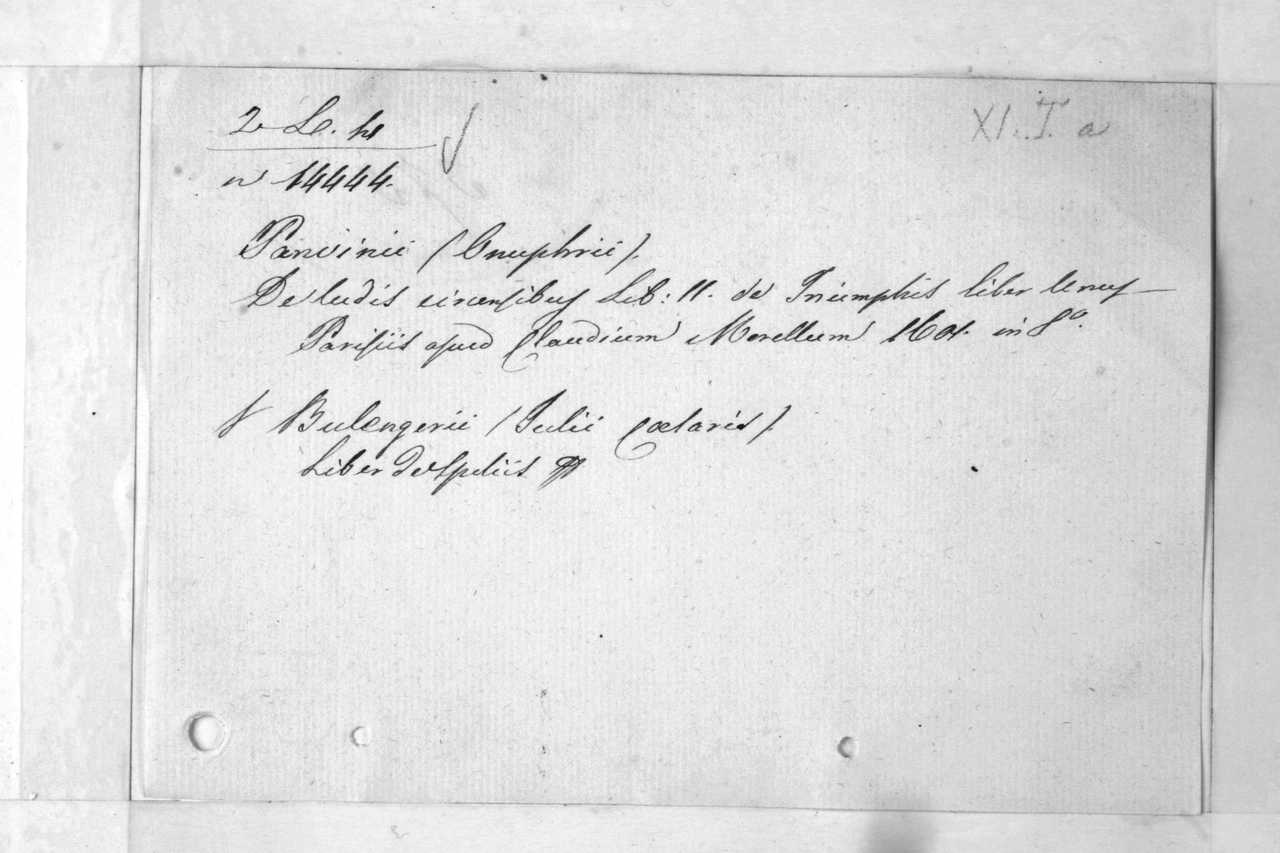 2 L. h XI. I. a
n 14444.
Panvinii (Onuphrii).
De ludis circensibus Lib: II. de Triumphis liber Unus
Parisiis apud Claudium Morellum 1601. in 8º.
Bulengerii (Julii Cæsaris)
Liber de Spoliis